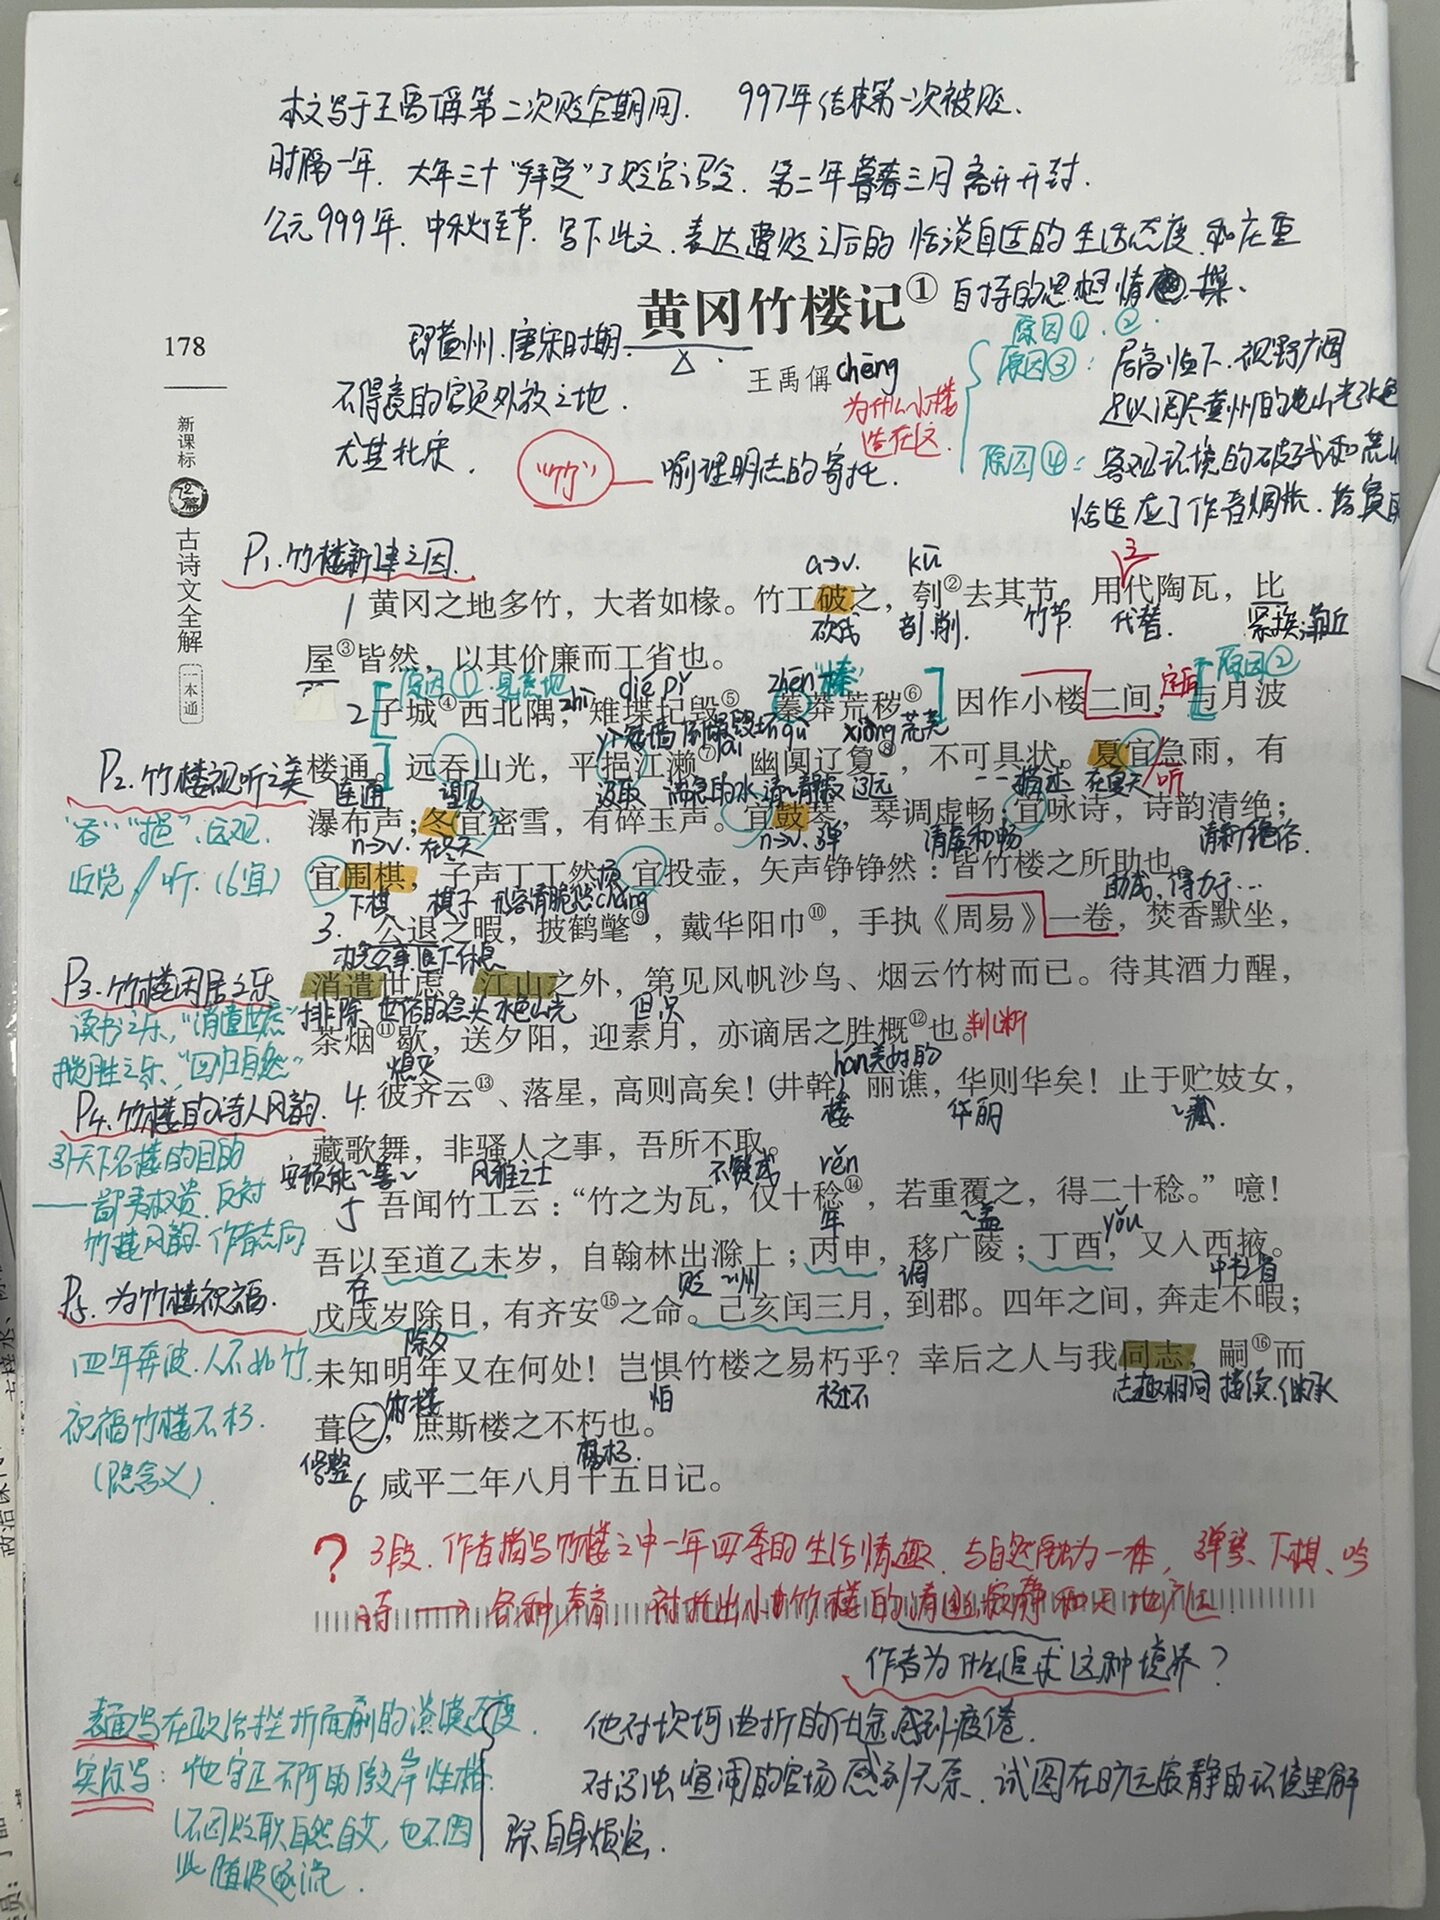 本文写于王禹偁第二次贬官期间. 997年结束第一次被贬.
时隔一年. 大年三十“拜受”了贬官诏令. 第二年暮春三月离开开封.
公元999年. 中秋佳节. 写下此文. 表达遭贬之后的恬淡自适的生活态度和庄重
自持的思想情操.
黄冈竹楼记①
王禹偁 chēng
178
新课标
72篇
古诗文全解
一本通
即黄州. 唐宋时期.
不得意的官员外放之地.
尤其北宋.
“竹” 喻理明志的寄托.
为什么小楼
造在这.
原因①. ②.
原因③: 居高临下. 视野广阔
足以阅尽黄州的山光水色
原因④: 客观环境的破残和荒
恰适应了作者惆怅. 落寞
P1. 竹楼新建之因.
a→v. kū
1 黄冈之地多竹，大者如椽。竹工破之，刳②去其节，用代陶瓦，比
砍成 剖削. 竹节 代替. 紧挨;靠近
屋③皆然，以其价廉而工省也。
原因① 见荒地 zhì dié pǐ zhēn “榛” 原因②
2 子城④西北隅，雉堞圮毁⑤，蓁莽荒秽⑥，因作小楼二间，与月波
倒塌毁坏 荒芜
P2. 竹楼视听之美
楼通。远吞山光，平挹江濑⑦，幽阒辽夐⑧，不可具状。夏宜急雨，有
连通 望见 汲取 湍急的水 清幽静寂 辽远 描述 在夏天 听
“吞”“挹”. 远观.
瀑布声；冬宜密雪，有碎玉声。宜鼓琴，琴调虚畅；宜咏诗，诗韵清绝；
n→v. 在冬天 n→v. 弹 清虚和畅 清新绝俗.
近览 // 听. (6宜)
宜围棋，子声丁丁然；宜投壶，矢声铮铮然：皆竹楼之所助也。
下棋 棋子 形容清脆悠 chǎng 助成. 得力于…
3. 公退之暇，披鹤氅⑨，戴华阳巾⑩，手执《周易》一卷，焚香默坐，
办完公事，退下休息
P3. 竹楼闲居之乐
消遣世虑。江山之外，第见风帆沙鸟、烟云竹树而已。待其酒力醒，
排除 世俗的念头 水色山光 但，只
读书之乐，“消遣世虑”
茶烟⑪歇，送夕阳，迎素月，亦谪居之胜概⑫也。判断
熄灭 hán 美好的
揽胜之乐，“回归自然”
P4. 竹楼的诗人风韵.
4. 彼齐云⑬、落星，高则高矣！井幹、丽谯，华则华矣！止于贮妓女，
楼 华丽 ~藏.
藏歌舞，非骚人之事，吾所不取。
风雅之士 不赞成 rěn
引天下名楼的目的
——鄙夷权贵. 反衬
竹楼风韵. 作者志向
5 吾闻竹工云：“竹之为瓦，仅十稔⑭，若重覆之，得二十稔。”噫！
年 ~盖 yǒu
吾以至道乙未岁，自翰林出滁上；丙申，移广陵；丁酉，又入西掖。
在 贬~州 调 中书省
P5. 为竹楼祝福.
戊戌岁除日，有齐安⑮之命。己亥闰三月，到郡。四年之间，奔走不暇；
除夕
四年奔波. 人不如竹.
未知明年又在何处！岂惧竹楼之易朽乎？幸后之人与我同志，嗣⑯而
竹楼 怕 朽坏 志趣相同 接续. 继承
祝福竹楼不朽.
葺之，庶斯楼之不朽也。
修整 腐朽.
(隐含义).
6. 咸平二年八月十五日记。
? 3段. 作者描写竹楼之中一年四季的生活情趣. 与自然融为一体, 弹琴、下棋、吟
诗 → 各种声音. 衬托出小竹楼的清幽寂静和天地广远.
作者为什么追求这种境界？
表面写在政治挫折面前的淡漠态度.
实际写: 他守正不阿的傲岸性格.
(不因贬职自怨自艾, 也不因
此随波逐流.
他对坎坷曲折的仕途感到疲倦.
对污浊喧闹的官场感到无奈. 试图在旷远寂静的环境里解
除自身烦忧.